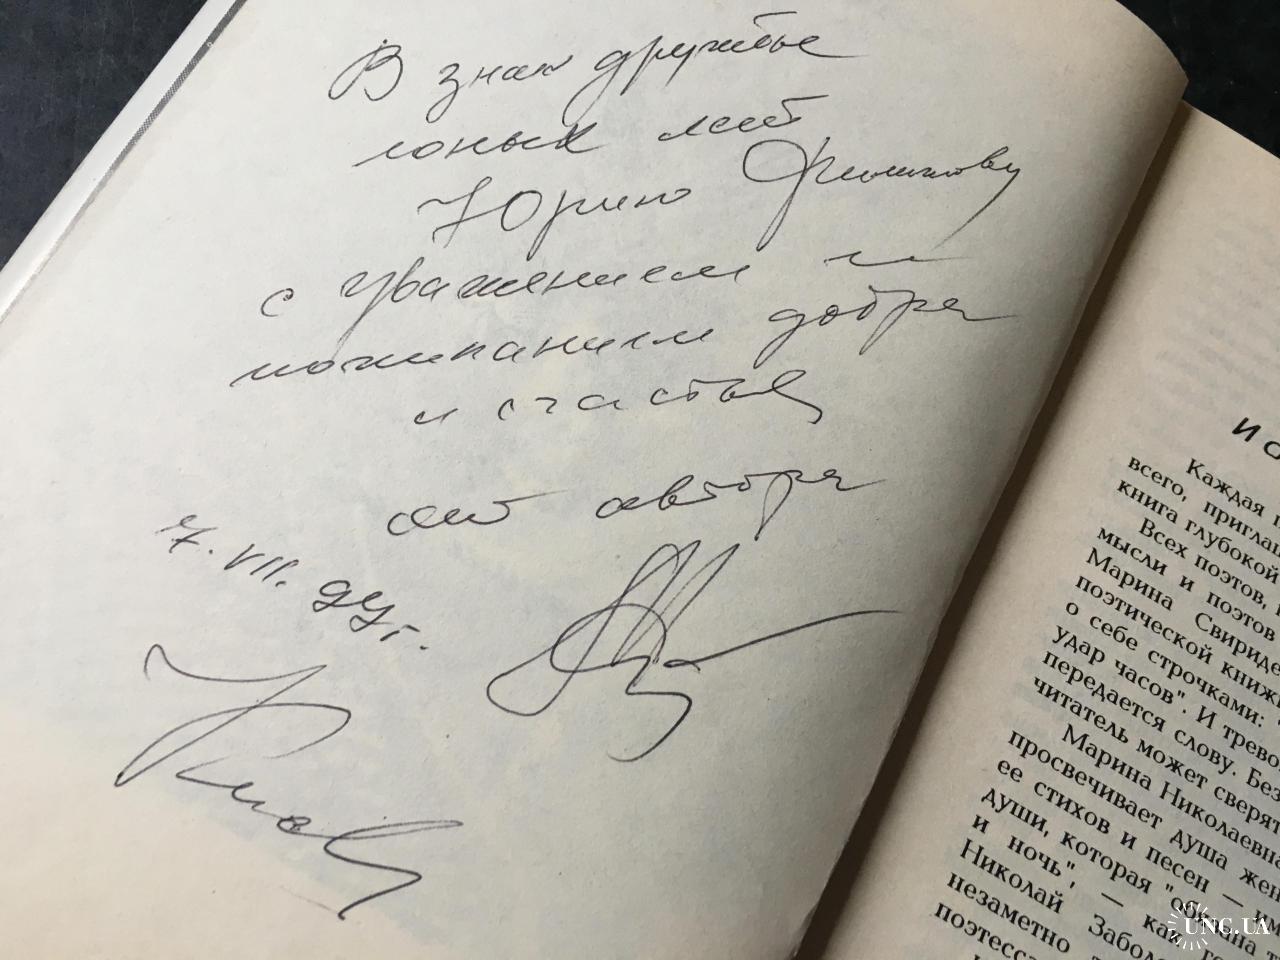 В знак дружбы
юных лет
Юрию
с уважением и
пожеланием добра
и счастья
от автора
7. VII. 99г.
Киев
И С
Каждая п
всего, приглаш
книга глубокой
Всех поэтов,
мысли и поэтов
Марина Свириде
поэтической книжк
о себе строчками: "
удар часов". И трево
передается слову. Без
читатель может сверят
Марина Николаевна
просвечивает душа жен
ее стихов и песен — им
души, которая "обя
и ночь", — как
Николай Заболо
незаметно
поэтесса
UNC.UA